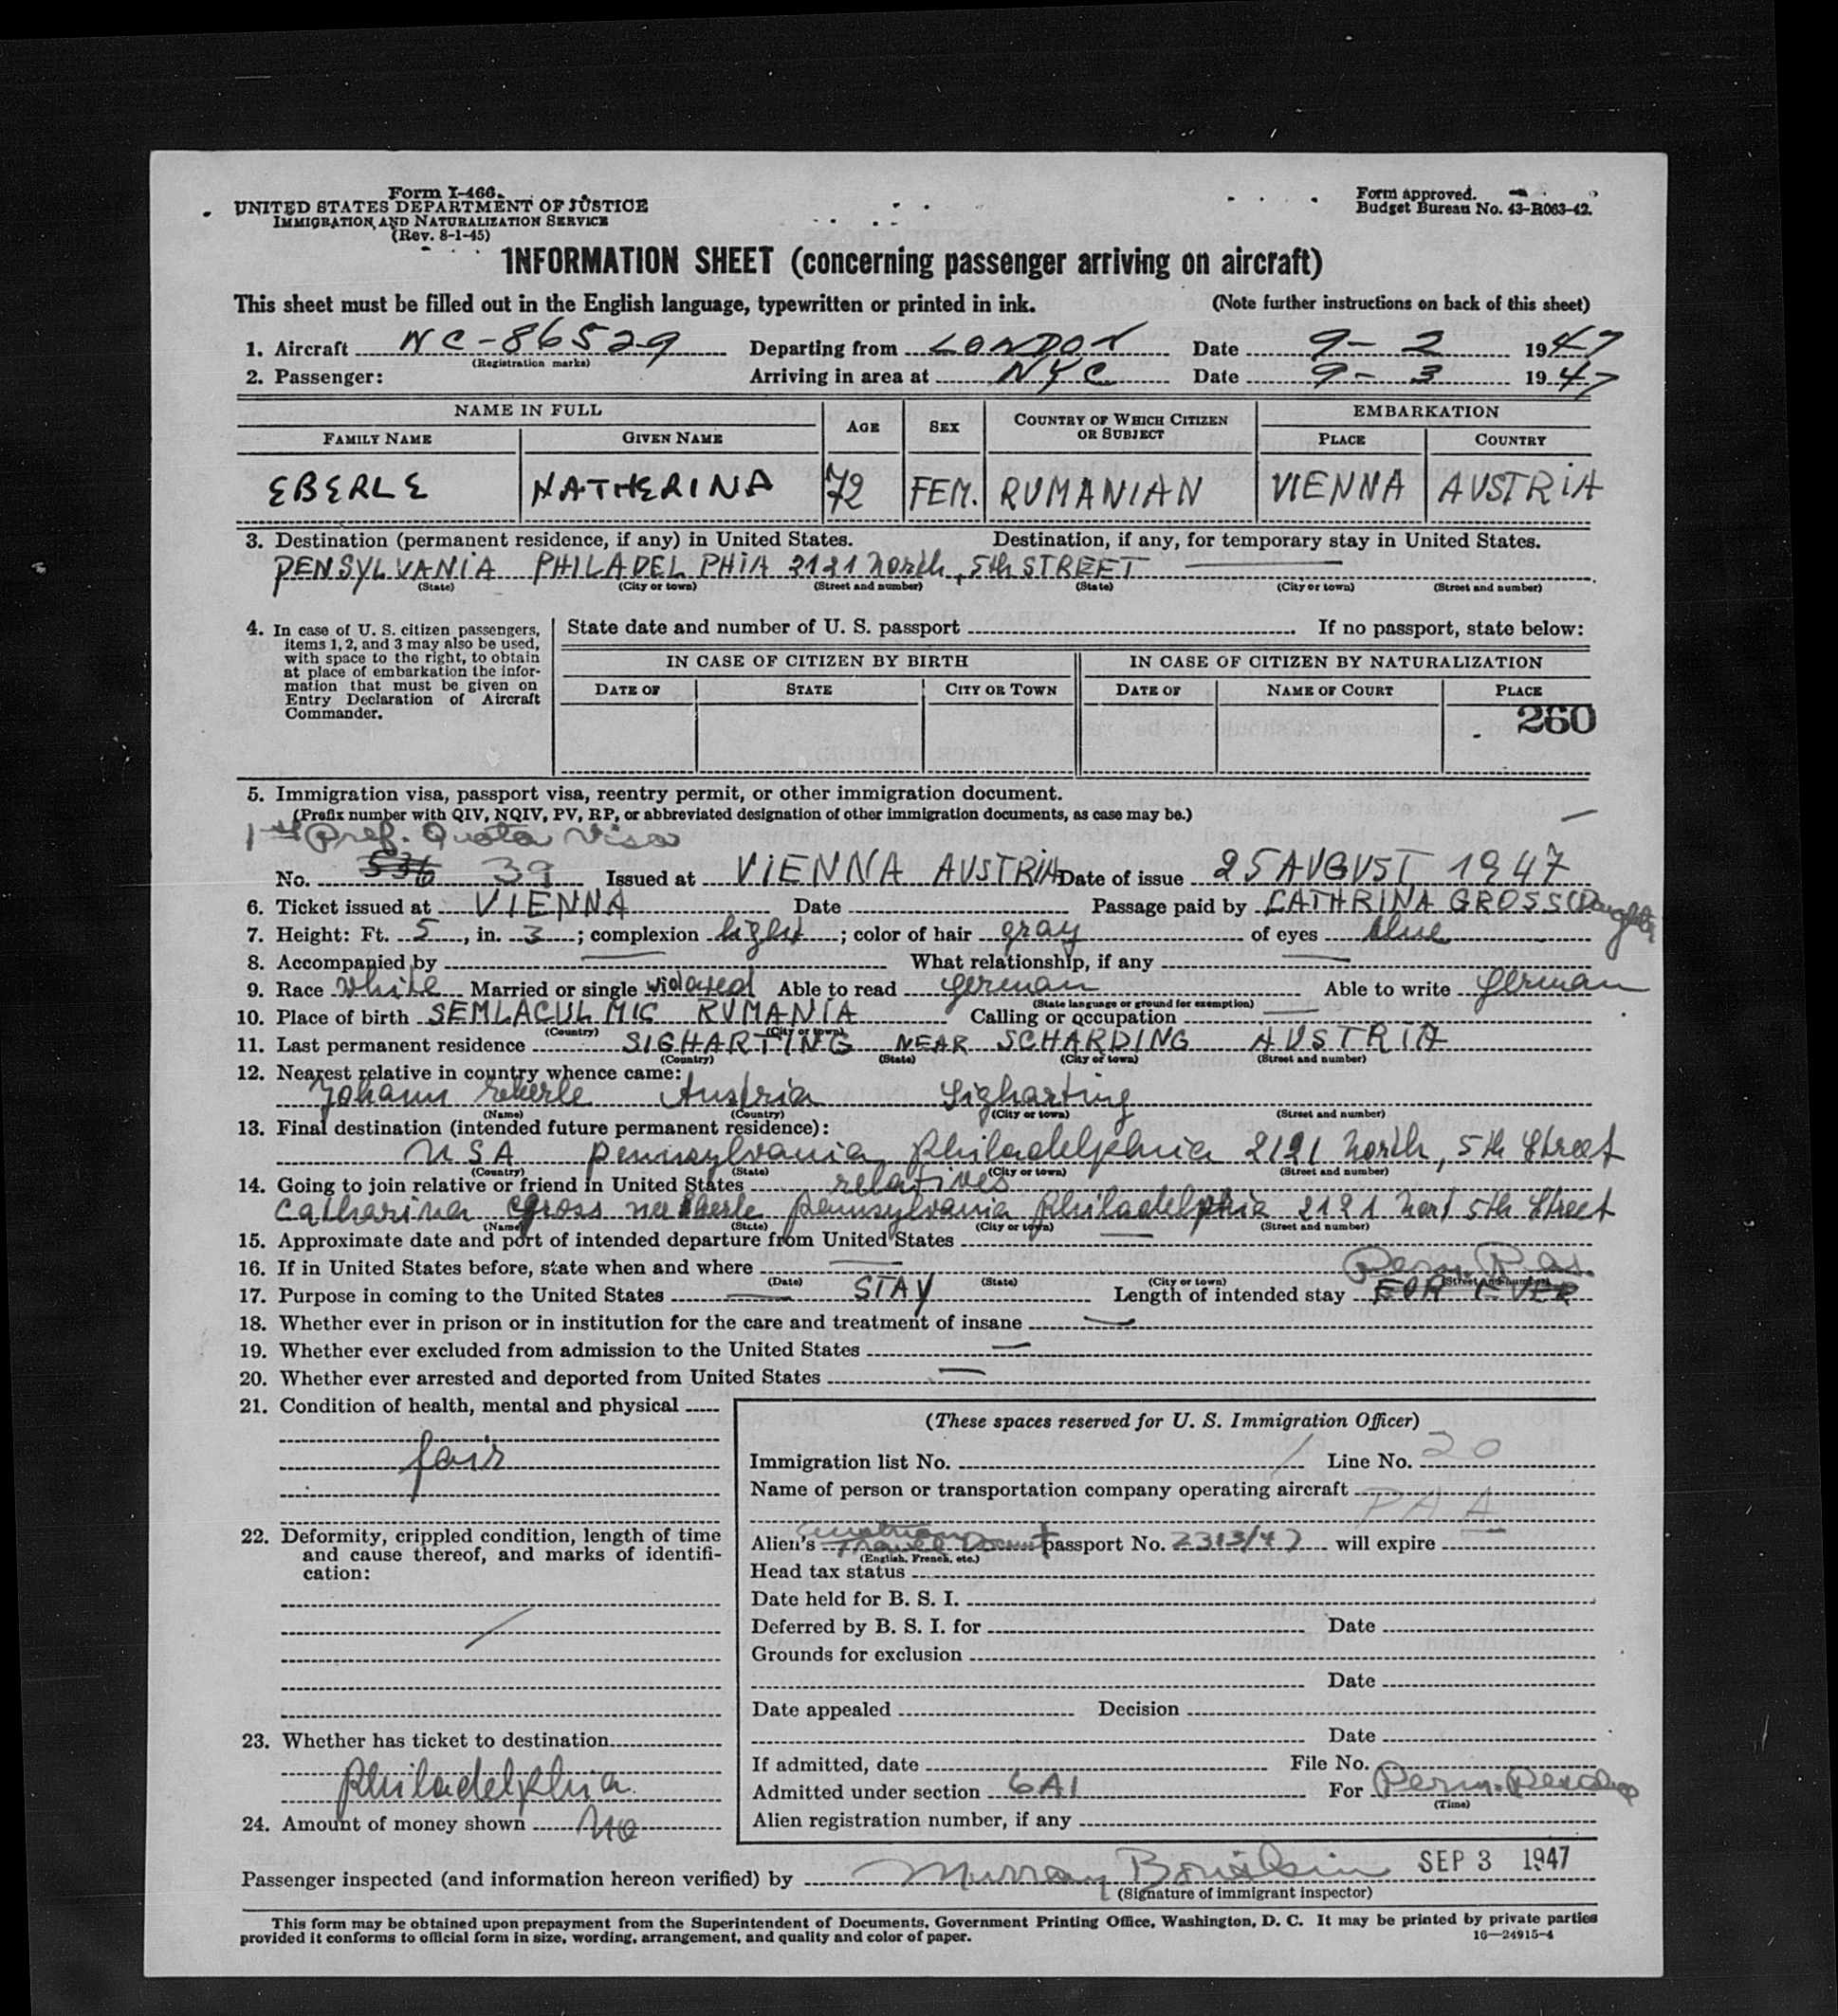 Form I-466
UNITED STATES DEPARTMENT OF JUSTICE
IMMIGRATION AND NATURALIZATION SERVICE
(Rev. 8-1-45)
Form approved.
Budget Bureau No. 43-R063-42.
INFORMATION SHEET (concerning passenger arriving on aircraft)
This sheet must be filled out in the English language, typewritten or printed in ink. (Note further instructions on back of this sheet)
1. Aircraft NC-86529 Departing from LONDON Date 9-2 1947
(Registration marks)
2. Passenger: Arriving in area at NYC Date 9-3 1947
NAME IN FULL AGE SEX COUNTRY OF WHICH CITIZEN OR SUBJECT EMBARKATION
FAMILY NAME GIVEN NAME PLACE COUNTRY
EBERLE KATHERINA 72 FEM. RUMANIAN VIENNA AUSTRIA
3. Destination (permanent residence, if any) in United States. Destination, if any, for temporary stay in United States.
PENSYLVANIA PHILADELPHIA 2121 North, 5th STREET
(State) (City or town) (Street and number) (State) (City or town) (Street and number)
4. In case of U. S. citizen passengers, items 1, 2, and 3 may also be used, with space to the right, to obtain at place of embarkation the information that must be given on Entry Declaration of Aircraft Commander.
State date and number of U. S. passport If no passport, state below:
IN CASE OF CITIZEN BY BIRTH IN CASE OF CITIZEN BY NATURALIZATION
DATE OF STATE CITY OR TOWN DATE OF NAME OF COURT PLACE
260
5. Immigration visa, passport visa, reentry permit, or other immigration document.
(Prefix number with QIV, NQIV, PV, RP, or abbreviated designation of other immigration documents, as case may be.)
1st Pref. Quota Visa
No. 536 39 Issued at VIENNA AUSTRIA Date of issue 25 AUGUST 1947
6. Ticket issued at VIENNA Date Passage paid by CATHRINA GROSS (Daughter
7. Height: Ft. 5, in. 3; complexion light; color of hair gray of eyes blue
8. Accompanied by What relationship, if any
9. Race white Married or single widowed Able to read german Able to write german
(State language or ground for exemption)
10. Place of birth SEMLACUL MIC RUMANIA Calling or occupation
(Country) (City or town)
11. Last permanent residence SIGHARTING NEAR SCHARDING AUSTRIA
(Country) (State) (City or town) (Street and number)
12. Nearest relative in country whence came:
Johann Eberle Austria Sigharting
(Name) (Country) (City or town) (Street and number)
13. Final destination (intended future permanent residence):
USA Pennsylvania Philadelphia 2121 North, 5th Street
(Country) (State) (City or town) (Street and number)
14. Going to join relative or friend in United States relatives
Catharina Gross nee Eberle Pennsylvania Philadelphia 2121 Nort 5th Street
(Name) (State) (City or town) (Street and number)
15. Approximate date and port of intended departure from United States
16. If in United States before, state when and where Perm. Res.
(Date) (State) (City or town) (Street and number)
17. Purpose in coming to the United States STAY Length of intended stay FOR EVER
18. Whether ever in prison or in institution for the care and treatment of insane
19. Whether ever excluded from admission to the United States
20. Whether ever arrested and deported from United States
21. Condition of health, mental and physical
fair
22. Deformity, crippled condition, length of time and cause thereof, and marks of identification:
23. Whether has ticket to destination
Philadelphia
24. Amount of money shown no
(These spaces reserved for U. S. Immigration Officer)
Immigration list No. 1 Line No. 20
Name of person or transportation company operating aircraft
PAA
Alien's Austrian Travel Docum't passport No. 2313/47 will expire
(English, French, etc.)
Head tax status
Date held for B. S. I.
Deferred by B. S. I. for Date
Grounds for exclusion
Date
Date appealed Decision
Date
If admitted, date File No.
Admitted under section 6A1 For Perm. Residence
(Time)
Alien registration number, if any
Passenger inspected (and information hereon verified) by Murray SEP 3 1947
(Signature of immigrant inspector)
This form may be obtained upon prepayment from the Superintendent of Documents, Government Printing Office, Washington, D. C. It may be printed by private parties
provided it conforms to official form in size, wording, arrangement, and quality and color of paper.
16—24915-4